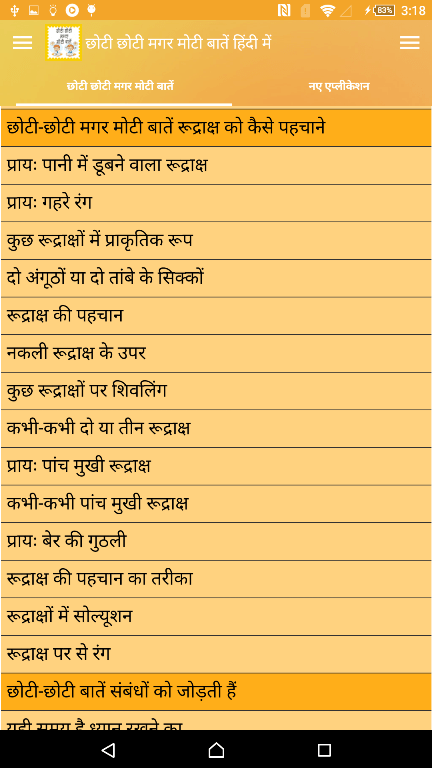 83% 3:18
छोटी छोटी मगर मोटी बातें हिंदी में
छोटी छोटी मगर मोटी बातें
नए एप्लीकेशन
छोटी-छोटी मगर मोटी बातें रूद्राक्ष को कैसे पहचाने
प्रायः पानी में डूबने वाला रूद्राक्ष
प्रायः गहरे रंग
कुछ रूद्राक्षों में प्राकृतिक रूप
दो अंगूठों या दो तांबे के सिक्कों
रूद्राक्ष की पहचान
नकली रूद्राक्ष के उपर
कुछ रूद्राक्षों पर शिवलिंग
कभी-कभी दो या तीन रूद्राक्ष
प्रायः पांच मुखी रूद्राक्ष
कभी-कभी पांच मुखी रूद्राक्ष
प्रायः बेर की गुठली
रूद्राक्ष की पहचान का तरीका
रूद्राक्षों में सोल्यूशन
रूद्राक्ष पर से रंग
छोटी-छोटी बातें संबंधों को जोड़ती हैं
यही समय है ध्यान रखने का